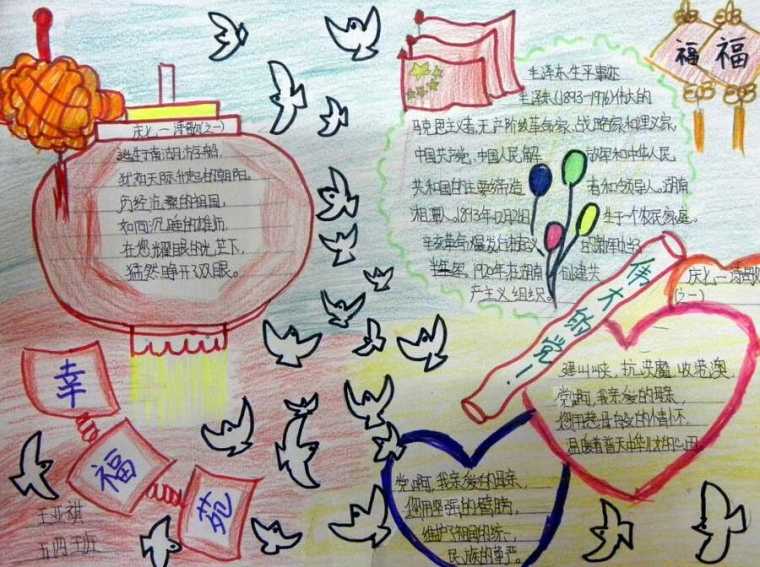 庆七一诗歌(之一)
诞生于南湖的航船,
犹如天际升起的朝阳,
历经沧桑的祖国,
如同沉睡的雄狮,
在您耀眼的光芒下,
猛然睁开了双眼。
幸
福
苑
五四班
毛泽东生平事迹
毛泽东(1893-1976)伟大的
马克思主义者,无产阶级革命家、战略家和理义家,
中国共产党,中国人民解放军和中华人民
共和国的主要缔造者和领导人。湖南
湘潭人。1893年12月26日生于一个农民家庭。
辛亥革命爆发后
1920年在湖南创建共
产主义组织。
福
福
伟大的党!
庆七一诗歌
(之一)
建山峡,抗洪魔,收港澳,
党啊,我亲爱的母亲,
您用慈母般的情怀,
温暖着普天中华儿女的心田。
党啊,我亲爱的母亲,
您用坚强的臂膀,
维护了祖国的统一,
民族的尊严。